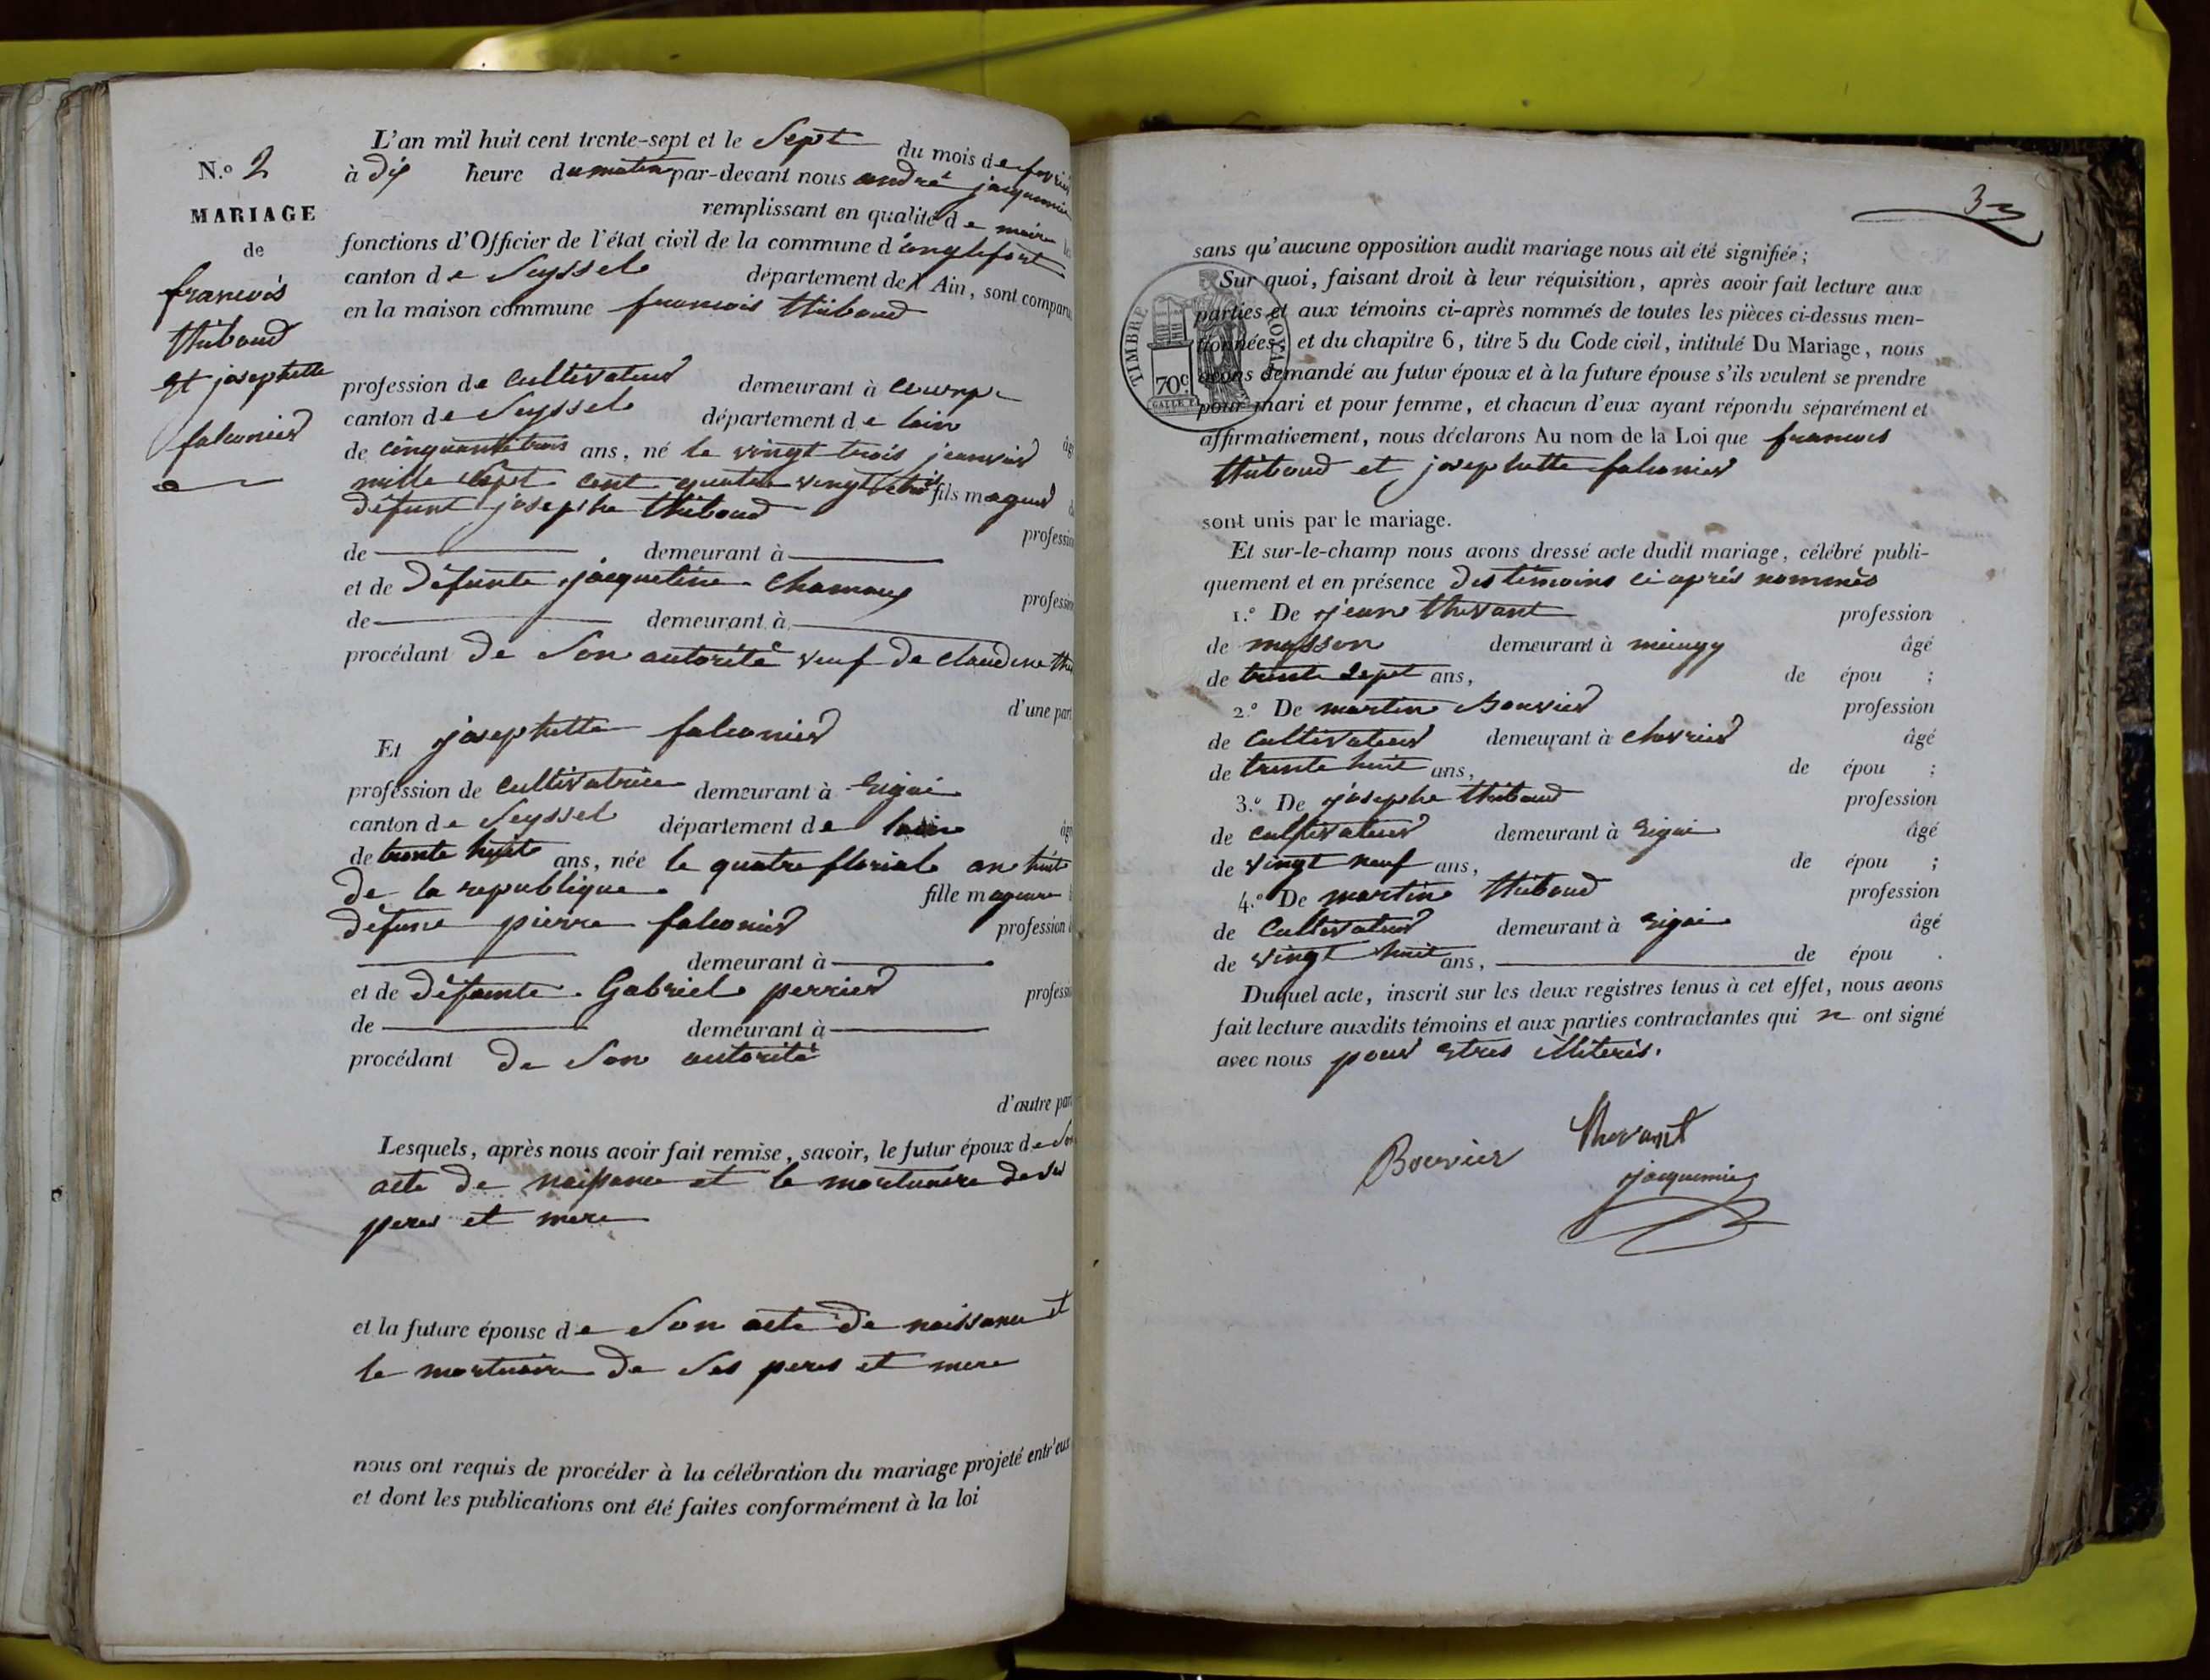 N.o 2
MARIAGE
de
francois
thibaud
Et josephette
falconier
L'an mil huit cent trente-sept et le Sept du mois de fevrier
à dix heure du matin par-devant nous andré jacquemier
remplissant en qualité de maire
fonctions d'Officier de l'état civil de la commune d'anglefort
canton de Seyssel département de l'Ain, sont comparu
en la maison commune francois thibaud
profession de cultivateur demeurant à
canton de Seyssel département de lain
de cinquante trois ans, né le vingt trois janvier âg
mille sept cent quatre vingt fils mageur
défunt josephe thibaud
profession
de demeurant à
et de défunte jacquetine
profession
de demeurant à
procédant de Son autorité veuf de claudine
d'une part
Et josephette falconier
profession de cultivatrice demeurant à Eigai
canton de Seyssel département de lain
de trente huit ans, née le quatre florial an huit
de la republique fille mageure
défunt pierre falconier profession
demeurant à
et de défunte Gabriel perrier profession
de demeurant à
procédant de Son autorité
d'autre part
Lesquels, après nous avoir fait remise, savoir, le futur époux de Son
acte de naissance et le mortuaire de ses
peres et mere
et la future épouse de Son acte de naissance et
le mortuaire de Ses peres et mere
nous ont requis de procéder à la célébration du mariage projeté entr'eux
et dont les publications ont été faites conformément à la loi
3
sans qu'aucune opposition audit mariage nous ait été signifiée;
TIMBRE ROYAL
70c
Sur quoi, faisant droit à leur réquisition, après avoir fait lecture aux
parties et aux témoins ci-après nommés de toutes les pièces ci-dessus men-
tionnées, et du chapitre 6, titre 5 du Code civil, intitulé Du Mariage, nous
avons demandé au futur époux et à la future épouse s'ils veulent se prendre
pour mari et pour femme, et chacun d'eux ayant répondu séparément et
affirmativement, nous déclarons Au nom de la Loi que francois
thibaud et josephette falconier
sont unis par le mariage.
Et sur-le-champ nous avons dressé acte dudit mariage, célébré publi-
quement et en présence des témoins ci après nommés
1.o De jean thevant profession
de masson demeurant à âgé
de trente Sept ans, de épou ;
2.o De martin Bouvier profession
de Cultivateur demeurant à chevrier âgé
de trente huit ans, de épou ;
3.o De josephe thibaud profession
de cultivateur demeurant à Eigai âgé
de vingt neuf ans, de épou ;
4.o De martin thibaud profession
de Cultivateur demeurant à Eigai âgé
de vingt huit ans, de épou .
Duquel acte, inscrit sur les deux registres tenus à cet effet, nous avons
fait lecture auxdits témoins et aux parties contractantes qui n ont signé
avec nous pour Etres illiteris.
Bouvier thevant
jacquemier